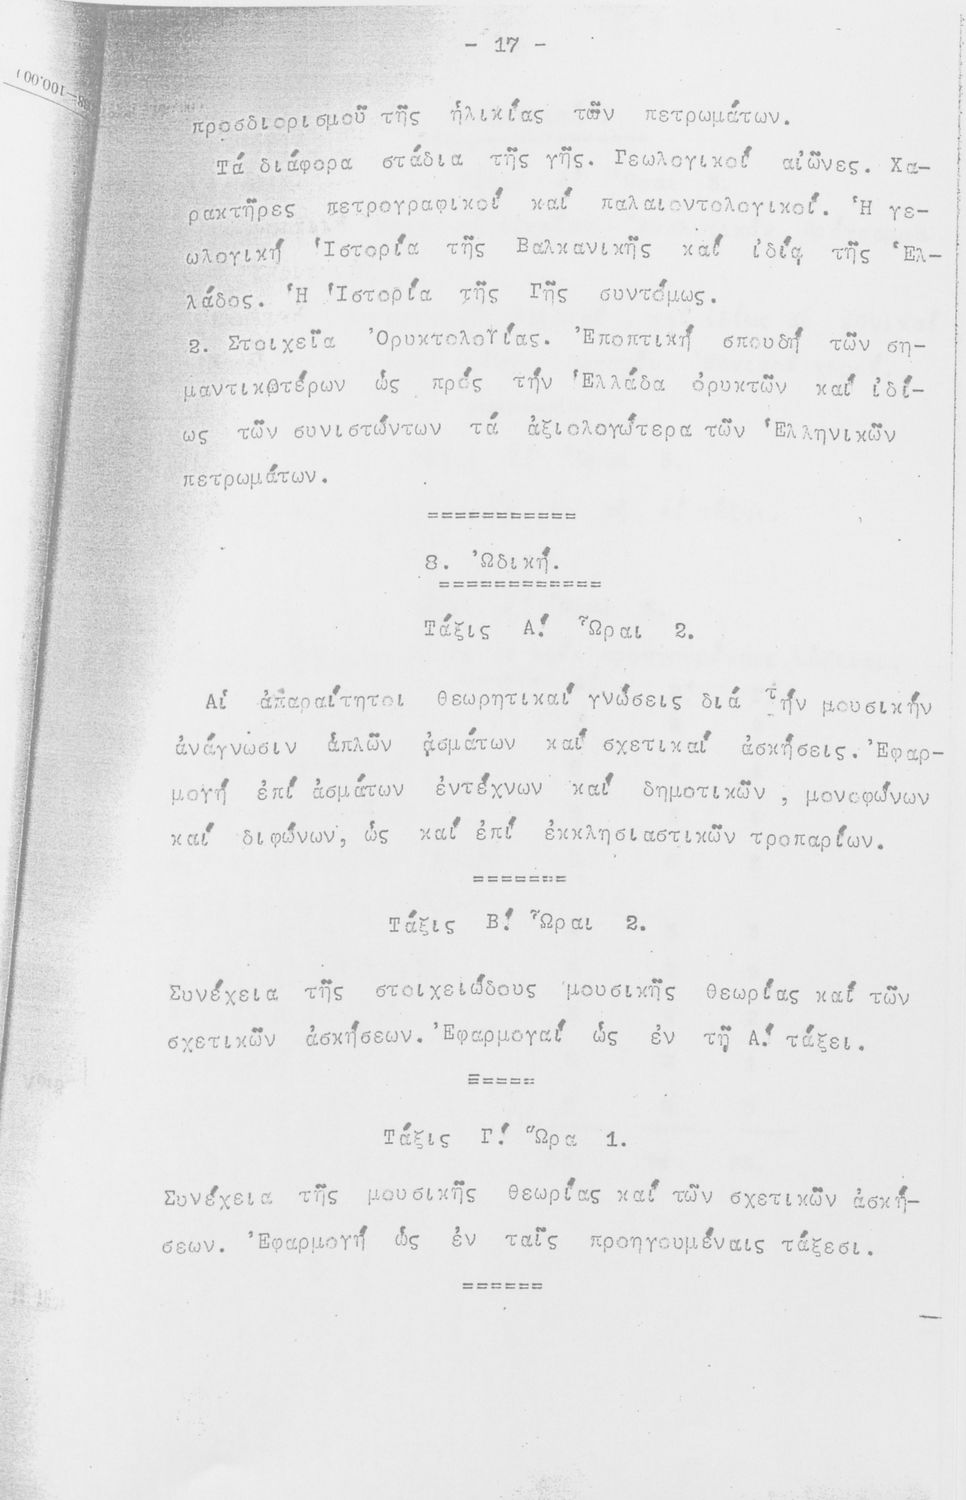 - 17 -
100.001
προσδιορισμοῦ τῆς ἡλικίας τῶν πετρωμάτων.
Τά διάφορα στάδια τῆς γῆς. Γεωλογικοί αἰῶνες. Χα-
ρακτῆρες πετρογραφικοί καί παλαιοντολογικοί. Ἡ γε-
ωλογική Ἱστορία τῆς Βαλκανικῆς καί ἰδίᾳ τῆς Ἑλ-
λάδος. Ἡ Ἱστορία τῆς Γῆς συντόμως.
2. Στοιχεῖα Ὀρυκτολογίας. Ἐποπτική σπουδή τῶν ση-
μαντικωτέρων ὡς πρός τήν Ἑλλάδα ὀρυκτῶν καί ἰδί-
ως τῶν συνιστώντων τά ἀξιολογώτερα τῶν Ἑλληνικῶν
πετρωμάτων.
===========
8. Ὠδική.
============
Τάξις Α.' Ὧραι 2.
Αἱ ἀπαραίτητοι θεωρητικαί γνώσεις διά τήν μουσικήν
ἀνάγνωσιν ἁπλῶν ᾀσμάτων καί σχετικαί ἀσκήσεις. Ἐφαρ-
μογή ἐπί ἀσμάτων ἐντέχνων καί δημοτικῶν , μονοφώνων
καί διφώνων, ὡς καί ἐπί ἐκκλησιαστικῶν τροπαρίων.
=======
Τάξις Β.' Ὧραι 2.
Συνέχεια τῆς στοιχειώδους μουσικῆς θεωρίας καί τῶν
σχετικῶν ἀσκήσεων. Ἐφαρμογαί ὡς ἐν τῇ Α.' τάξει.
=====
Τάξις Γ.' Ὥρα 1.
Συνέχεια τῆς μουσικῆς θεωρίας καί τῶν σχετικῶν ἀσκή-
σεων. Ἐφαρμογή ὡς ἐν ταῖς προηγουμέναις τάξεσι.
======